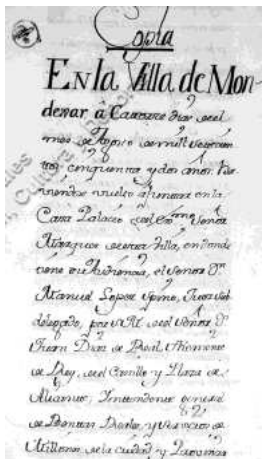 Copia
En la Villa de Mon-
devar â Catorze dias del
mes de Agosto de mill setecien
tos cinquenta y dos años.
viendose vuelto a juntar en la
Casa Palacio del Exmo Señor
Marques de esta Villa, en donde
tiene su Audiencia, el Señor Dn
Manuel Lopez Spino, Juez sub
delegado, por el Señor Dn
Juan Diaz de Real, theniente
de Rey, del Castillo y Plaza de
Alicante, Intendente general
de Rentas Reales, y Servicios de
Millones, de la ciudad y